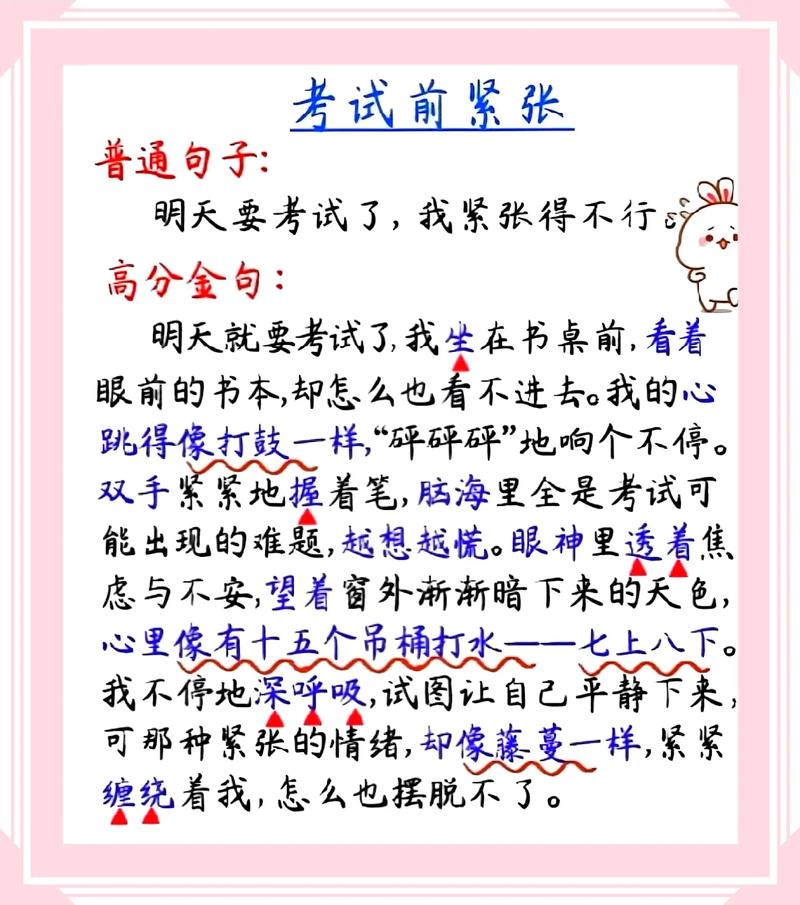 考试前紧张
普通句子:
明天要考试了,我紧张得不行。
高分金句:
明天就要考试了,我坐在书桌前,看着
眼前的书本,却怎么也看不进去。我的心
跳得像打鼓一样,“砰砰砰”地响个不停。
双手紧紧地握着笔,脑海里全是考试可
能出现的难题,越想越慌。眼神里透着焦
虑与不安,望着窗外渐渐暗下来的天色,
心里像有十五个吊桶打水——七上八下。
我不停地深呼吸,试图让自己平静下来,
可那种紧张的情绪,却像藤蔓一样,紧紧
缠绕着我,怎么也摆脱不了。